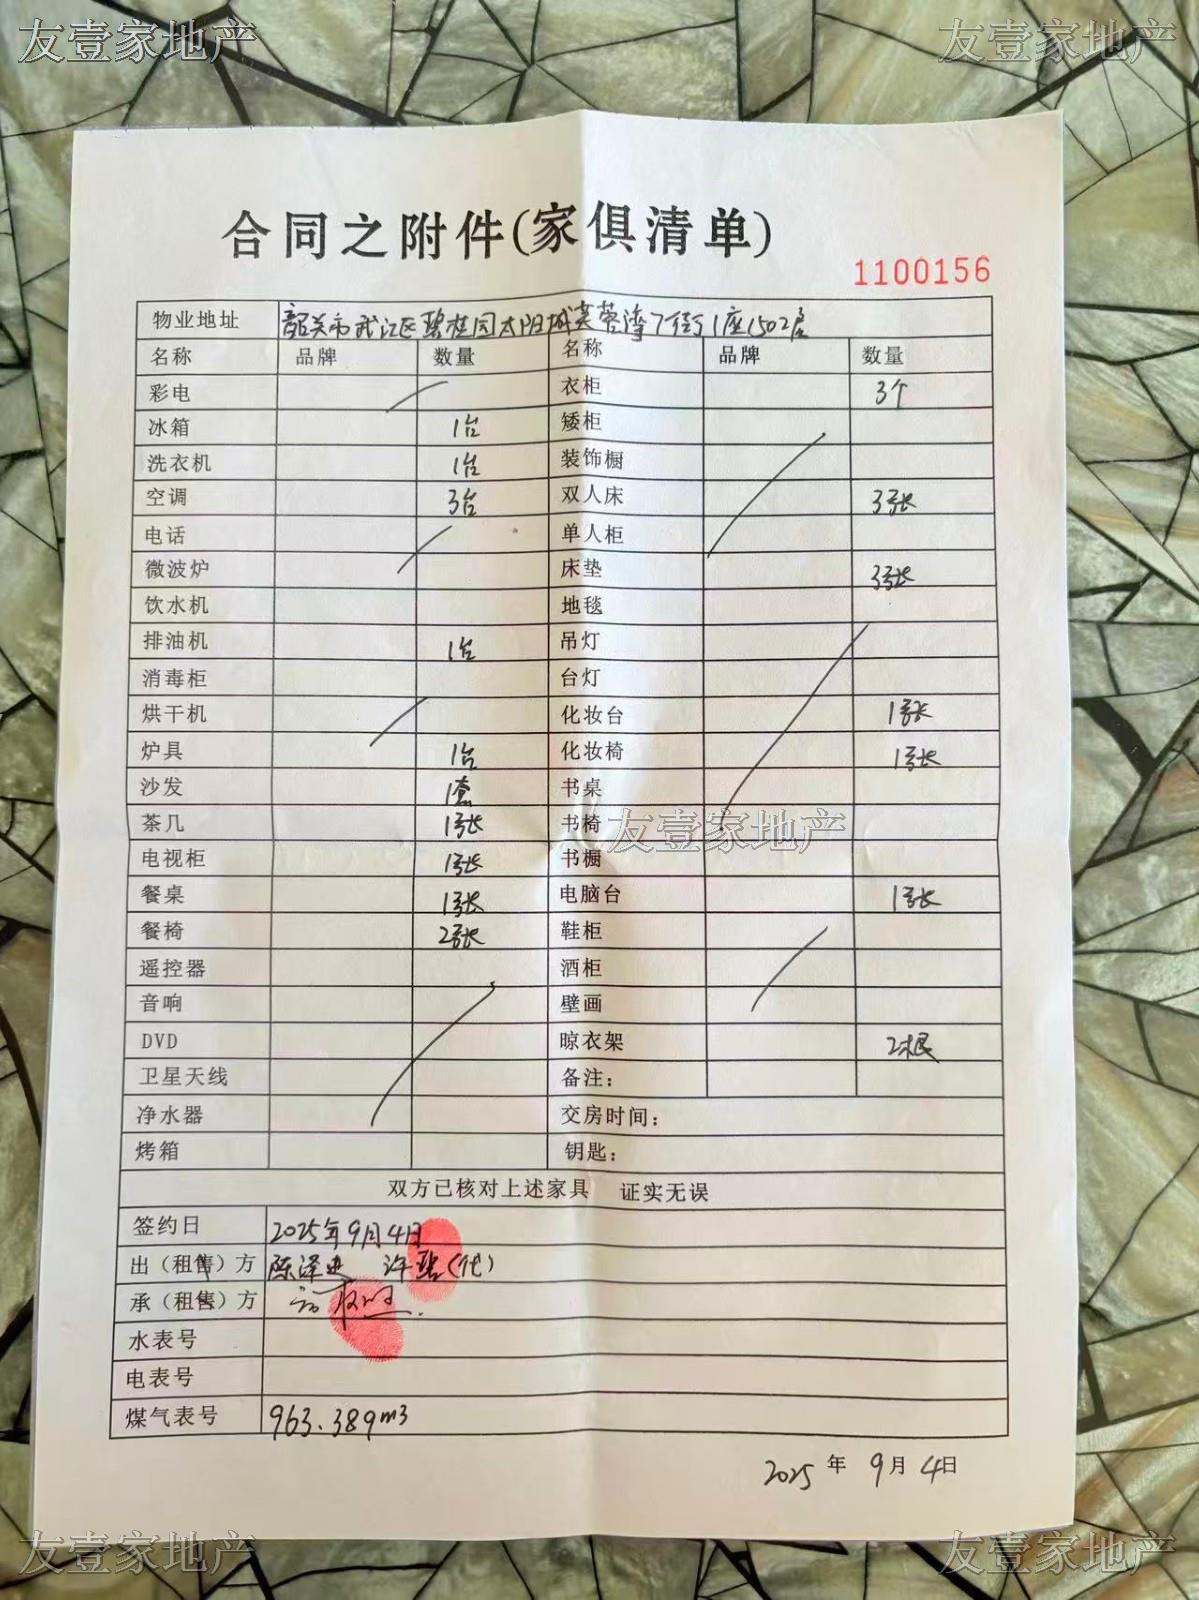 友壹家地产 友壹家地产
合同之附件(家俱清单)
1100156
物业地址 韶关市武江区碧桂园太阳城芙蓉湾7街1座1502房
名称 品牌 数量 名称 品牌 数量
彩电 衣柜 3个
冰箱 1台 矮柜
洗衣机 1台 装饰橱
空调 3台 双人床 3张
电话 单人柜
微波炉 床垫 3张
饮水机 地毯
排油机 1台 吊灯
消毒柜 台灯
烘干机 化妆台 1张
炉具 1台 化妆椅 1张
沙发 1套 书桌
茶几 1张 书椅
友壹家地产
电视柜 1张 书橱
餐桌 1张 电脑台 1张
餐椅 2张 鞋柜
遥控器 酒柜
音响 壁画
DVD 晾衣架 2根
卫星天线 备注：
净水器 交房时间：
烤箱 钥匙：
双方已核对上述家具 证实无误
签约日 2025年9月4日
出（租售）方 陈泽进 许碧(代)
承（租售）方
水表号
电表号
煤气表号 963.389m3
2025年9月4日
友壹家地产 友壹家地产